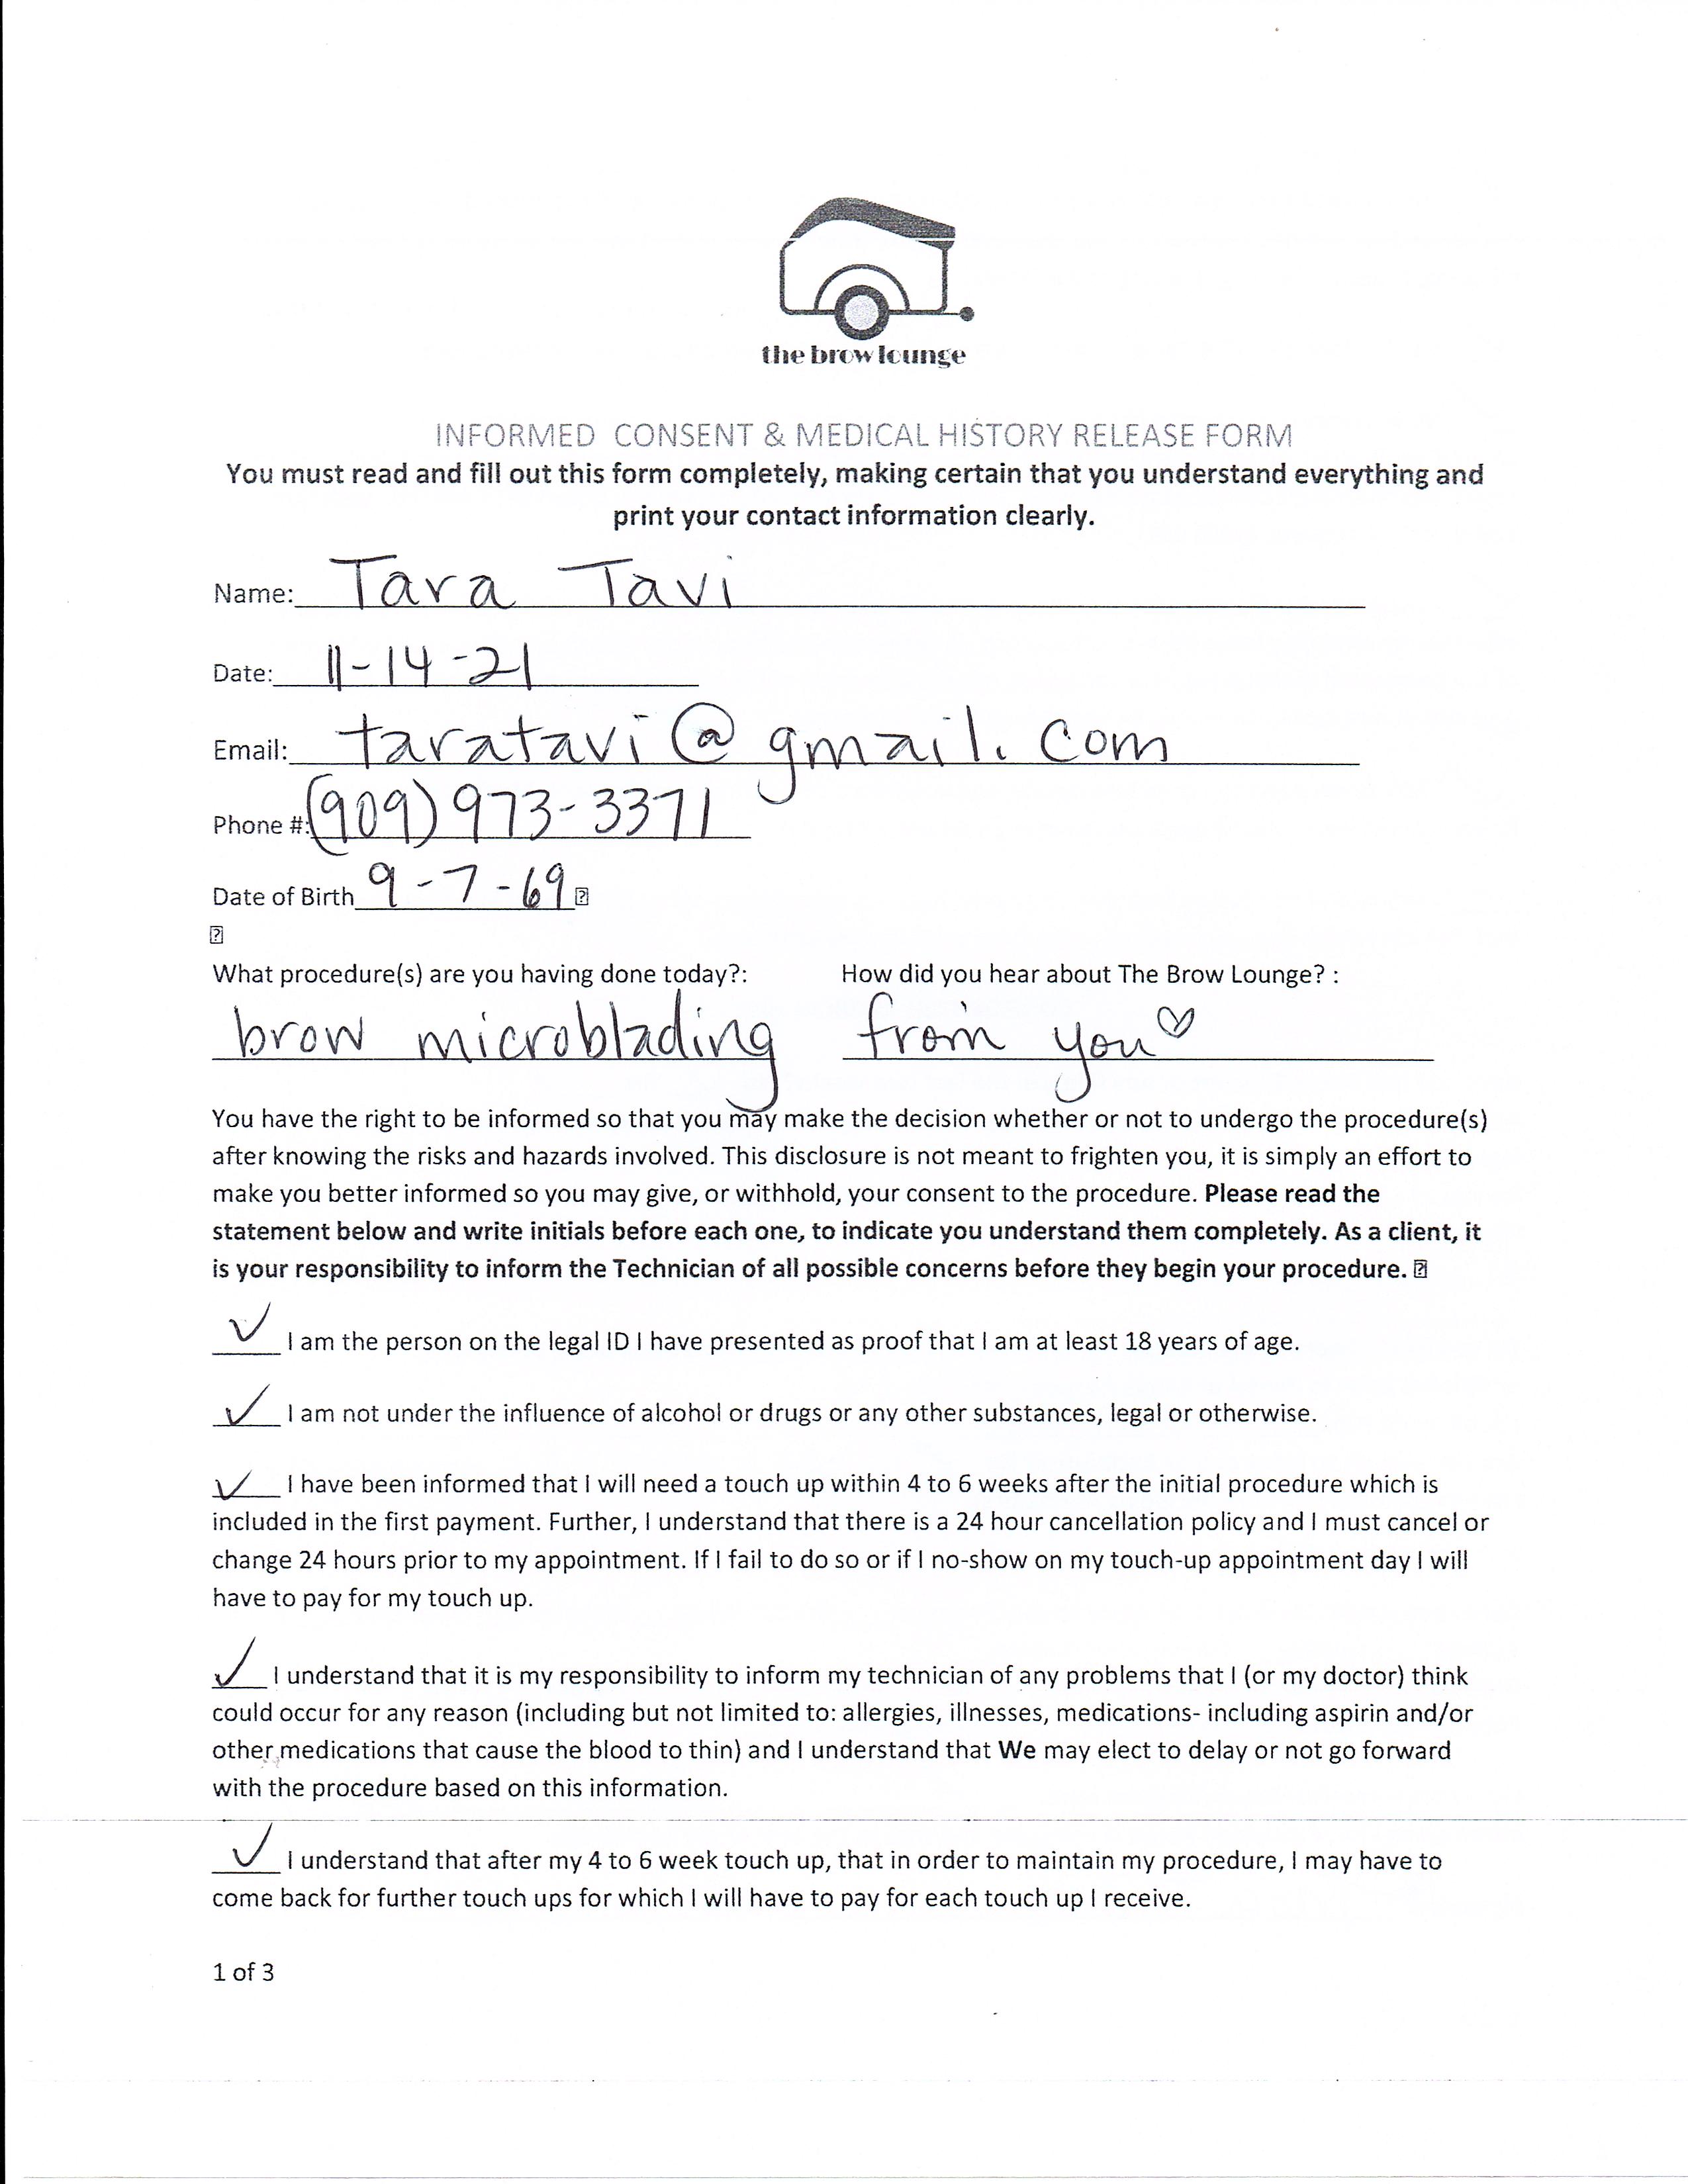 the brow lounge
INFORMED CONSENT & MEDICAL HISTORY RELEASE FORM
You must read and fill out this form completely, making certain that you understand everything and
print your contact information clearly.
Name: Tara Tavi
Date: 11-14-21
Email: taratavi@gmail.com
Phone #: (909) 973-3371
Date of Birth 9-7-69
What procedure(s) are you having done today?: How did you hear about The Brow Lounge? :
brow microblading from you♡
You have the right to be informed so that you may make the decision whether or not to undergo the procedure(s)
after knowing the risks and hazards involved. This disclosure is not meant to frighten you, it is simply an effort to
make you better informed so you may give, or withhold, your consent to the procedure. Please read the
statement below and write initials before each one, to indicate you understand them completely. As a client, it
is your responsibility to inform the Technician of all possible concerns before they begin your procedure.
✓ I am the person on the legal ID I have presented as proof that I am at least 18 years of age.
✓ I am not under the influence of alcohol or drugs or any other substances, legal or otherwise.
✓ I have been informed that I will need a touch up within 4 to 6 weeks after the initial procedure which is
included in the first payment. Further, I understand that there is a 24 hour cancellation policy and I must cancel or
change 24 hours prior to my appointment. If I fail to do so or if I no-show on my touch-up appointment day I will
have to pay for my touch up.
✓ I understand that it is my responsibility to inform my technician of any problems that I (or my doctor) think
could occur for any reason (including but not limited to: allergies, illnesses, medications- including aspirin and/or
other medications that cause the blood to thin) and I understand that We may elect to delay or not go forward
with the procedure based on this information.
✓ I understand that after my 4 to 6 week touch up, that in order to maintain my procedure, I may have to
come back for further touch ups for which I will have to pay for each touch up I receive.
1 of 3